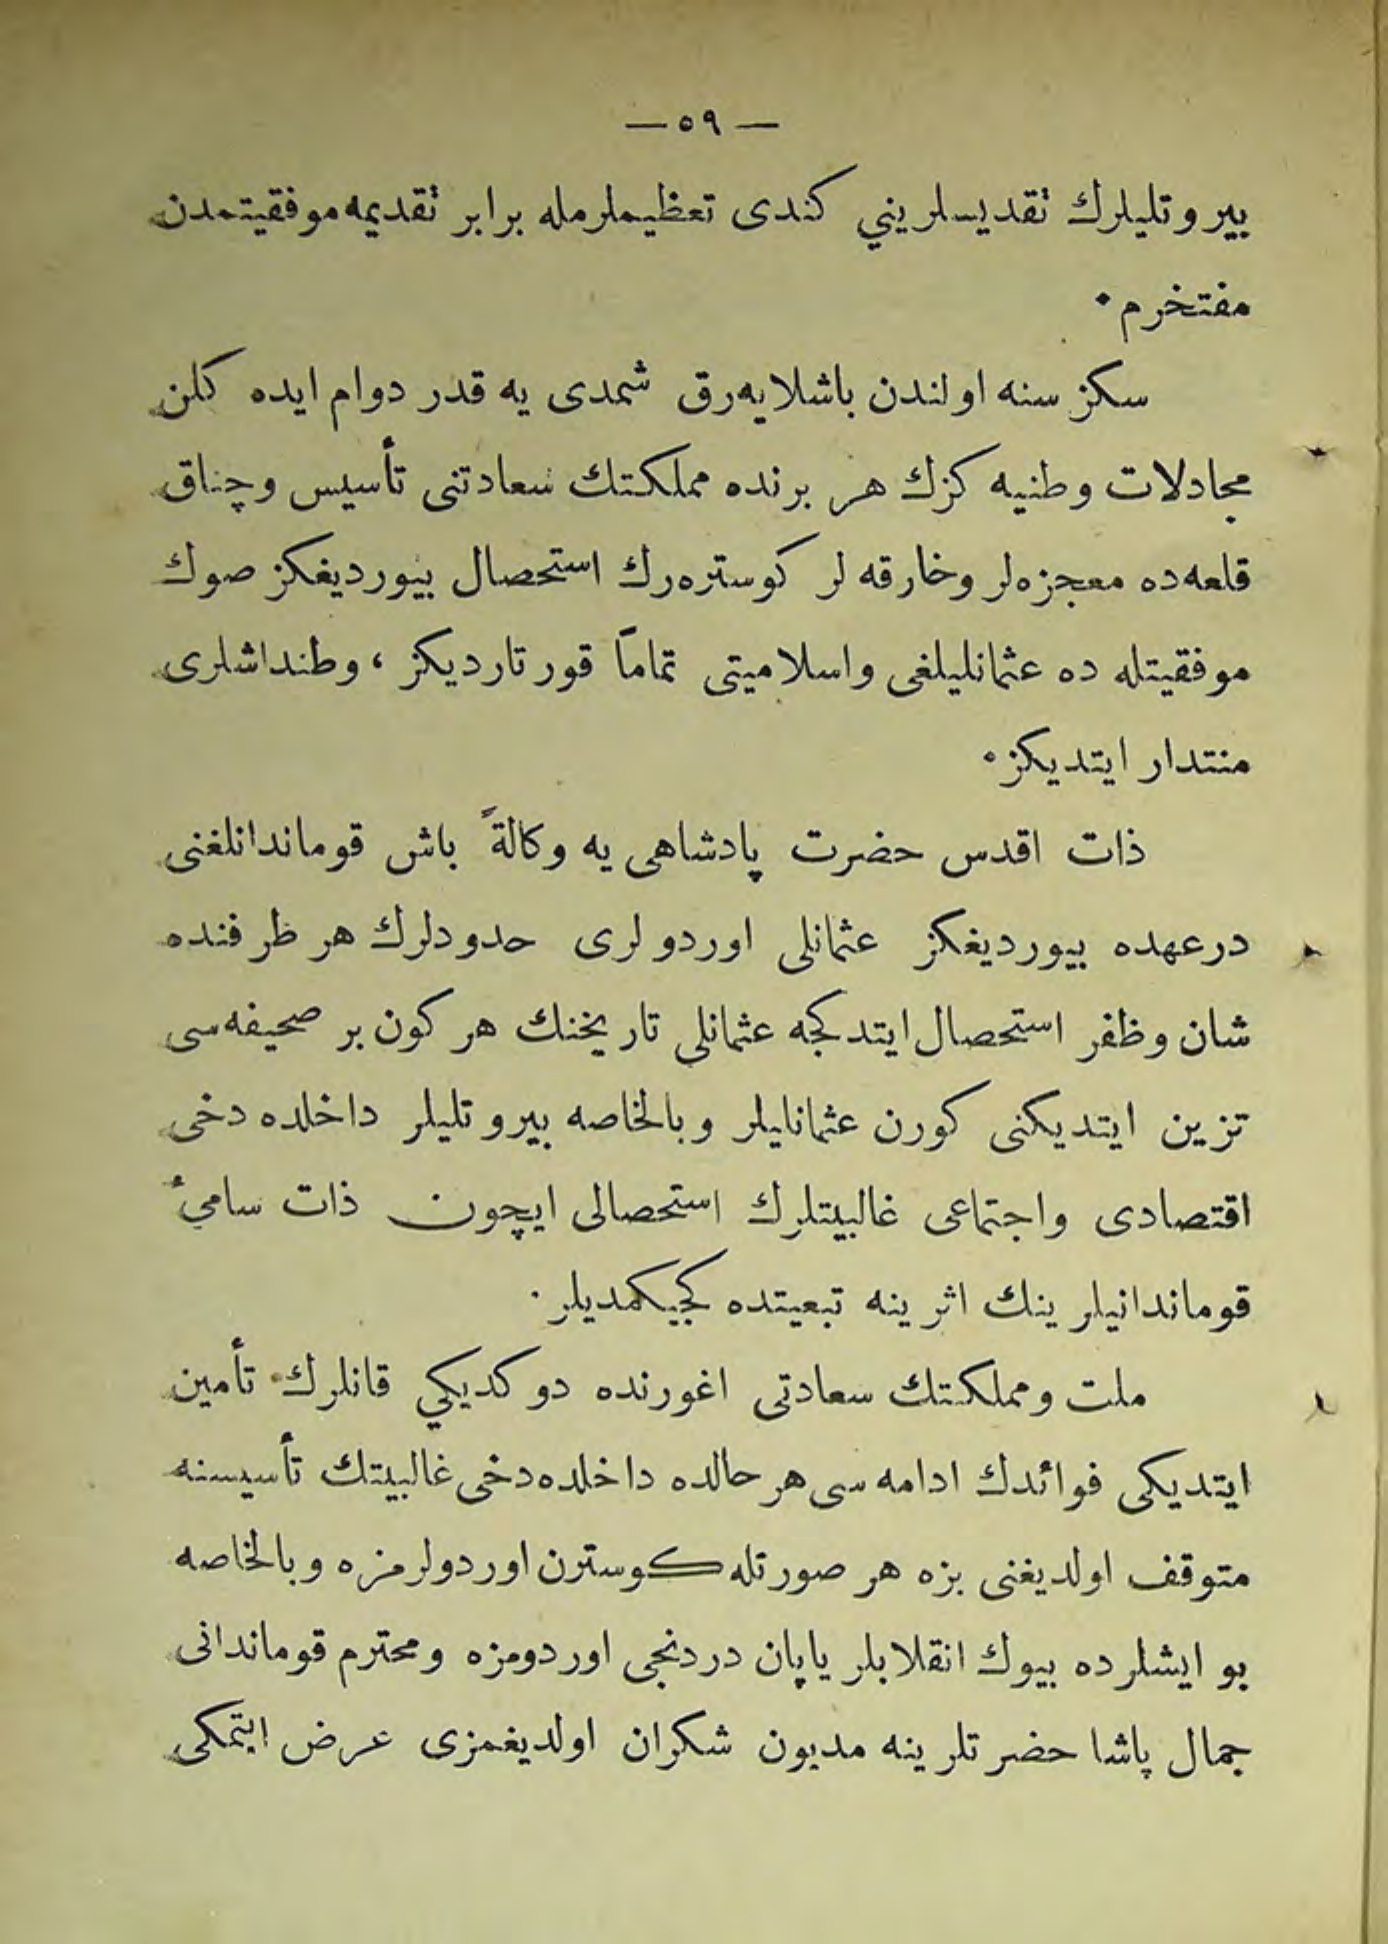 — ٥٩ —
بيروتليلرك تقديسلريني كندى تعظيملرمله برابر تقديمه موفقيتمدن
مفتخرم ٠
سكز سنه اولندن باشلايه‌رق شمدى يه قدر دوام ايده كلن
مجادلات وطنيه كزك هر برنده مملكتك سعادتنى تأسيس وچناق
قلعه‌ده معجزه‌لر وخارقه لر كوستره‌رك استحصال بيورديغكز صوك
موفقيتله ده عثمانليلغى واسلاميتى تماماً قورتارديكز ، وطنداشلرى
منتدار ايتديكز ٠
ذات اقدس حضرت پادشاهى يه وكالةً باش قوماندانلغنى
درعهده بيورديغكز عثمانلى اوردولرى حدودلرك هر طرفنده
شان وظفر استحصال ايتدكجه عثمانلى تاريخنك هر كون بر صحيفه‌سى
تزين ايتديكنى كورن عثمانليلر وبالخاصه بيروتليلر داخلده دخى
اقتصادى واجتماعى غالبيتلرك استحصالى ايچون ذات ساميءُ
قوماندانيلرينك اثرينه تبعيتده كجيكمديلر ٠
ملت ومملكتك سعادتى اغورنده دوكديكي قانلرك تأمين
ايتديكى فوائدك ادامه سى هر حالده داخلده دخى غالبيتك تأسيسنه
متوقف اولديغنى بزه هر صورتله كوسترن اوردولرمزه وبالخاصه
بو ايشلرده بيوك انقلابلر ياپان دردنجى اوردومزه ومحترم قوماندانى
جمال پاشا حضرتلرينه مديون شكران اولديغمزى عرض ايتمكى